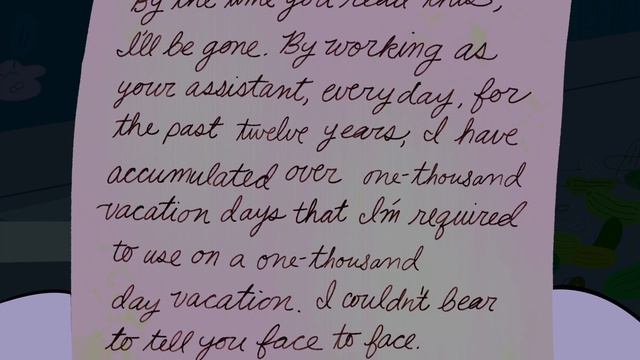 By the time you read this,
I'll be gone. By working as
your assistant, everyday, for
the past twelve years, I have
accumulated over one-thousand
vacation days that I'm required
to use on a one-thousand
day vacation. I couldn't bear
to tell you face to face.